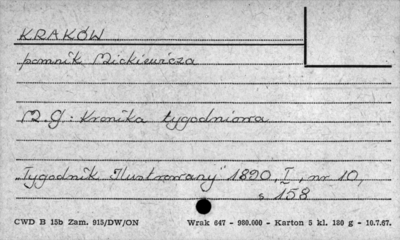 KRAKÓW
pomnik Mickiewicza
M. G.: Kronika tygodniowa
"Tygodnik Ilustrowany" 1890, I, nr 10,
s. 158
CWD B 15b Zam. 915/DW/ON Wrak 647 - 980.000 - Karton 5 kl. 180 g - 10.7.67.